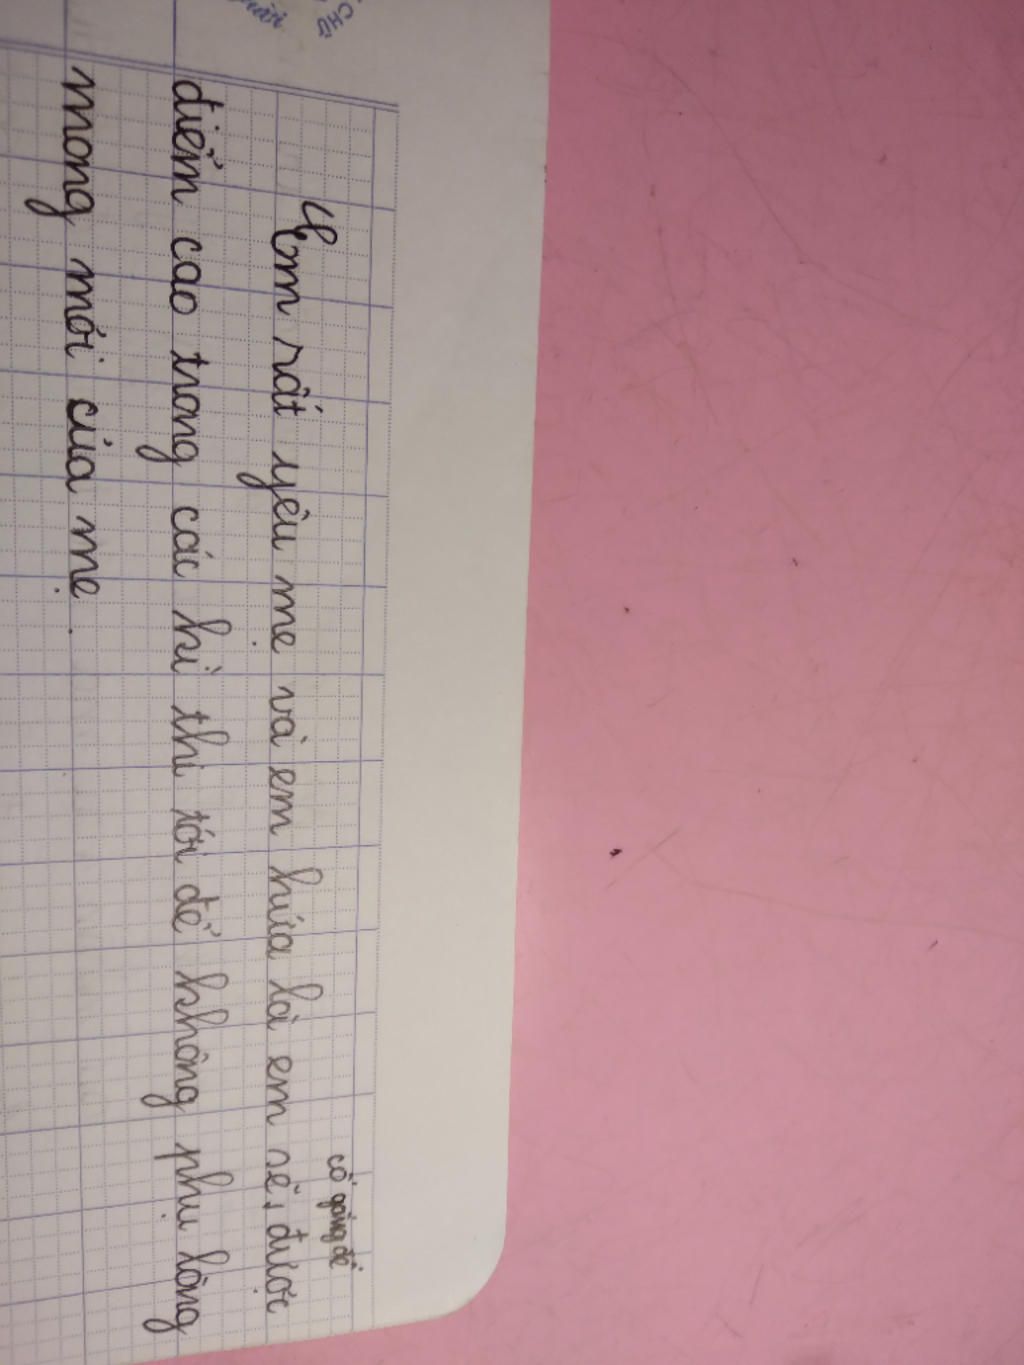 CHỮ
cố gắng để
Em rất yêu mẹ và em hứa là em sẽ, được
điểm cao trong các kì thi tới để không phụ lòng
mong mỏi của mẹ.